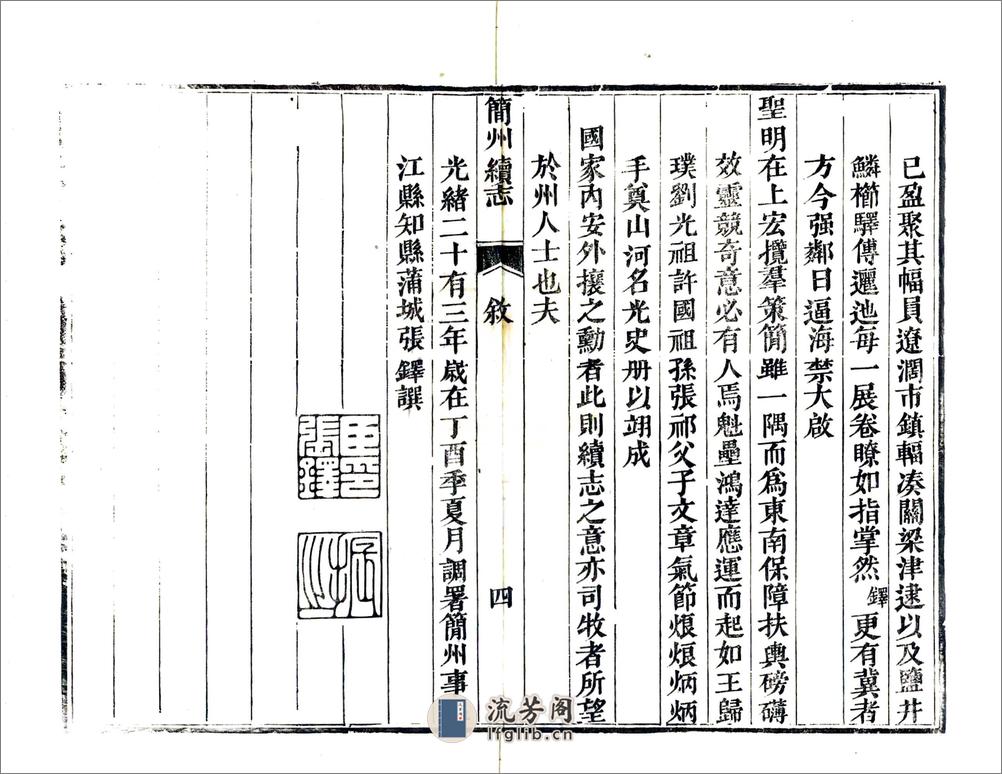 已盈聚其幅員遼濶市鎮輻凑關梁津逮以及鹽井
鱗櫛驛傳邐迆每一展卷瞭如指掌然鐸更有冀者
方今强鄰日逼海禁大啟
聖明在上宏攬羣策簡雖一隅而爲東南保障扶輿磅礴
效靈競奇意必有人焉魁壘鴻達應運而起如王歸
璞劉光祖許國祖孫張祁父子文章氣節烺烺炳炳
手奠山河名光史册以翊成
國家內安外攘之勳者此則續志之意亦司牧者所望
於州人士也夫
簡州續志
敘
四
光緒二十有三年歲在丁酉季夏月調署簡州事
江縣知縣蒲城張鐸譔
張鐸
流芳阁
lfglib.cn